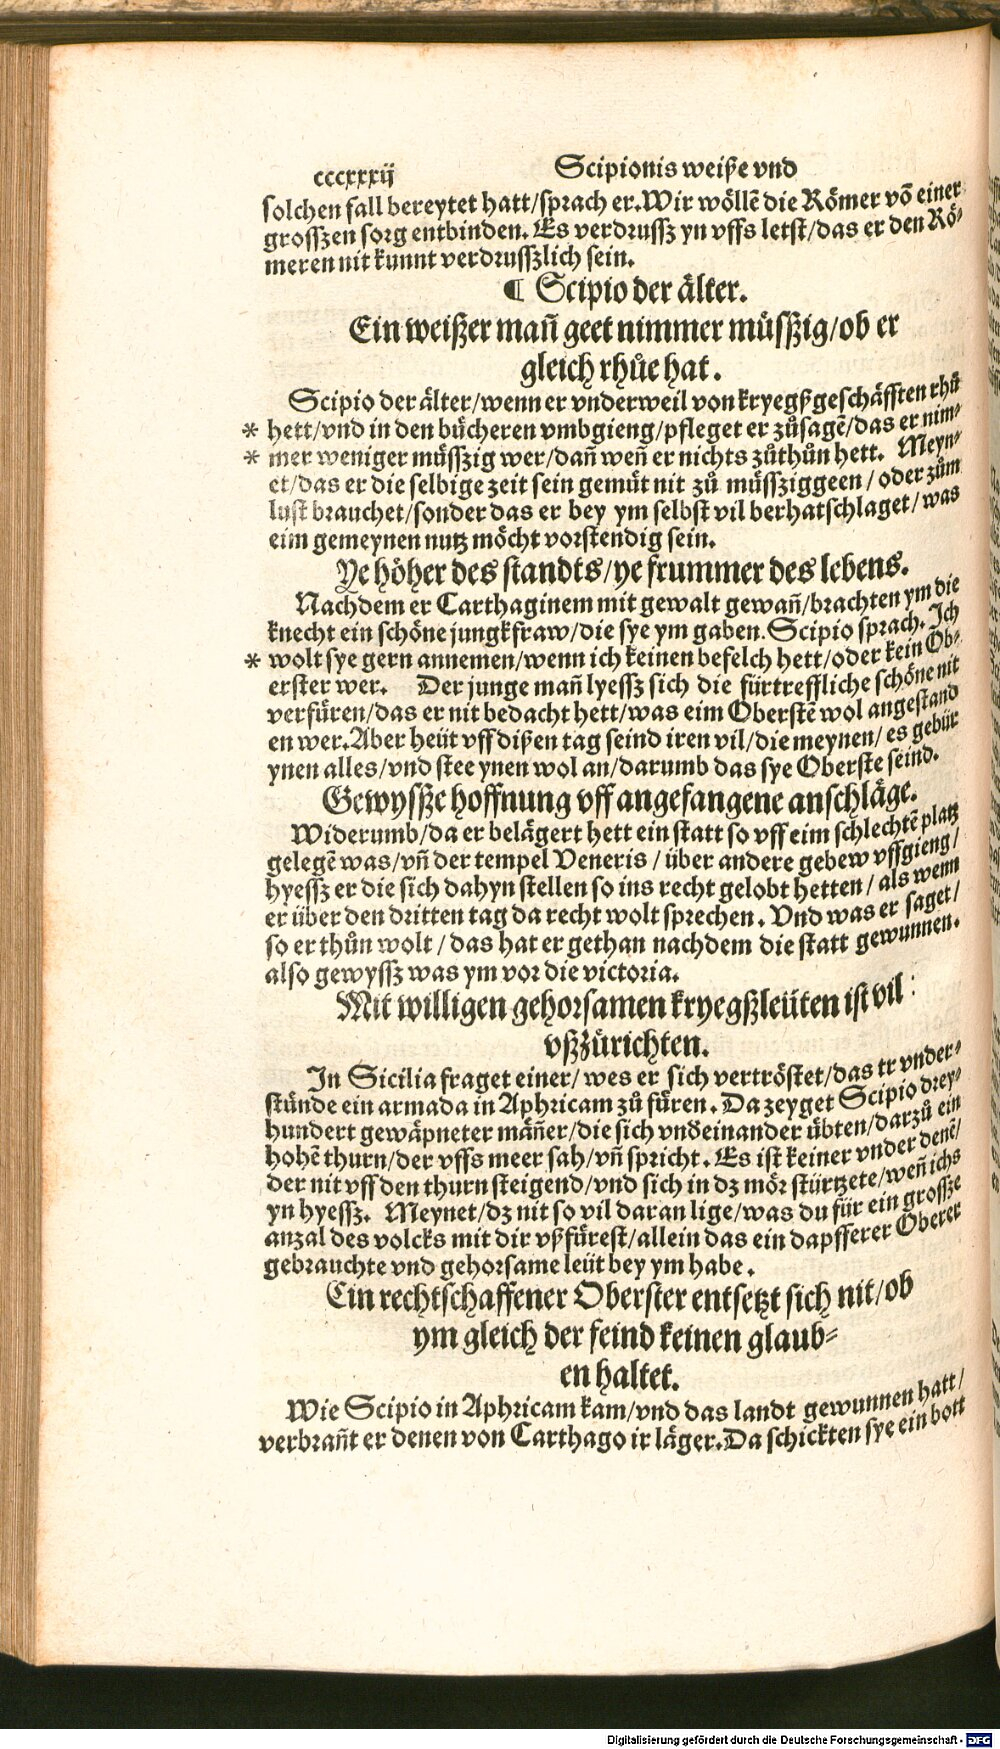 cccxxxij Scipionis weiße vnd
solchen fall bereytet hatt/sprach er.Wir wöllē die Römer võ einer
grosszen sorg entbinden. Es verdrussz yn vffs letst/das er den Rö⸗
meren nit kunnt verdrusszlich sein.
¶ Scipio der älter.
Ein weißer mañ geet nimmer müsszig/ob er
gleich rhůe hat.
Scipio der älter/wenn er vnderweil von kryegßgeschäfften rhů
* hett/vnd in den bücheren vmbgieng/pfleget er zůsagē/das er nim⸗
* mer weniger müsszig wer/dañ weñ er nichts zůthůn hett. Meyn⸗
et/das er die selbige zeit sein gemüt nit zů müsszig geen/oder zům
lust brauchet/sonder das er bey ym selbst vil berhatschlaget/was
eim gemeynen nutz möcht vorstendig sein.
Ye höher des standts/ye frummer des lebens.
Nachdem er Carthaginem mit gewalt gewañ/brachten ym die
knecht ein schöne jungkfraw/die sye ym gaben.Scipio sprach. Ich
* wolt sye gern annemen/wenn ich keinen befelch hett/oder kein Ob⸗
erster wer. Der junge mañ lyessz sich die fürtreffliche schöne nit
verfüren/das er nit bedacht hett/was eim Oberstē wol angestand
en wer.Aber heüt vff dißen tag seind iren vil/die meynen/es gebür
ynen alles/vnd stee ynen wol an/darumb das sye Oberste seind.
Gewyssze hoffnung vff angefangene anschläge.
Widerumb/da er belägert hett ein statt so vff eim schlechtē platz
gelegē was/vñ der tempel Veneris/über andere gebew vffgieng/
hyessz er die sich dahyn stellen so ins recht gelobt hetten/als wenn
er über den dritten tag da recht wolt sprechen. Vnd was er saget/
so er thůn wolt/das hat er gethan nachdem die statt gewunnen.
also gewyssz was ym vor die victoria.
Mit willigen gehorsamen kryegßleüten ist vil
vßzürichten.
In Sicilia fraget einer/wes er sich vertröstet/das er vnder⸗
stünde ein armada in Aphricam zů füren. Da zeyget Scipio drey⸗
hundert gewäpneter mäñer/die sich vndeinander übten/darzů ein
hohē thurn/der vffs meer sah/vñ spricht. Es ist keiner vnder denē/
der nit vff den thurn steigend/vnd sich in dz mör stürtzete/weñ ichs
yn hyessz. Meynet/dz nit so vil daran lige/was du für ein grossze
anzal des volcks mit dir vßfürest/allein das ein dapfferer Oberer
gebrauchte vnd gehorsame leüt bey ym habe.
Ein rechtschaffener Oberster entsetzt sich nit/ob
ym gleich der feind keinen glaub⸗
en haltet.
Wie Scipio in Aphricam kam/vnd das landt gewunnen hatt/
verbrañt er denen von Carthago ir läger.Da schickten sye ein bott
Digitalisierung gefördert durch die Deutsche Forschungsgemeinschaft - DFG